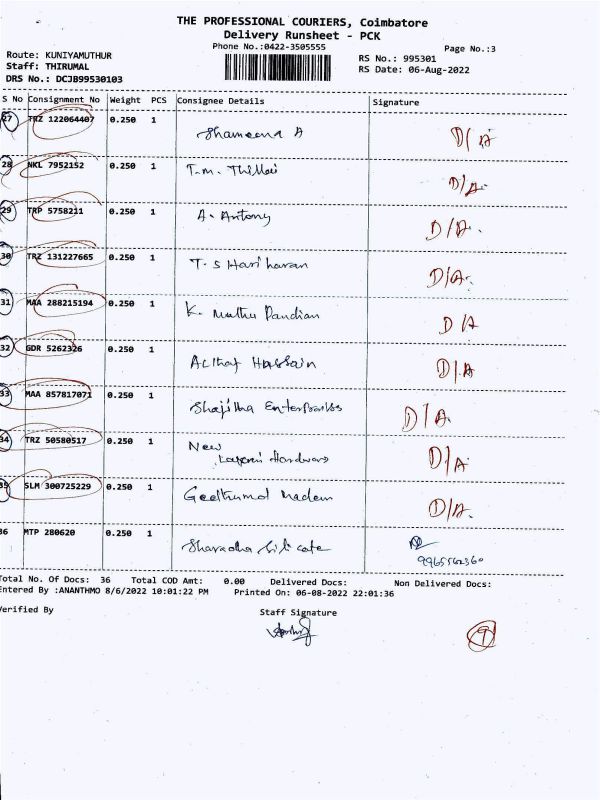 THE PROFESSIONAL COURIERS, Coimbatore
Delivery Runsheet - PCK
Phone No.:0422-3505555
Page No.:3
Route: KUNIYAMUTHUR
RS No.: 995301
Staff: THIRUMAL
RS Date: 06-Aug-2022
DRS No.: DCJB99530103
S No Consignment No Weight PCS Consignee Details Signature
27 TRZ 122064407 0.250 1 Shameena A D/A
28 NKL 7952152 0.250 1 T.M. Thillai D/A.
29 TRP 5758211 0.250 1 A. Antony D/A.
30 TRZ 131227665 0.250 1 T.S Hariharan D/A.
31 MAA 288215194 0.250 1 K. Muthu Pandian D/A
32 GDR 5262326 0.250 1 Althaf Hussain D/A
33 MAA 857817071 0.250 1 Shajitha Enterprises D/A.
34 TRZ 50580517 0.250 1 New
Hardware D/A.
35 SLM 300725229 0.250 1 Madam D/A.
36 MTP 280620 0.250 1 Sharadha Silicate
9965562360
Total No. Of Docs: 36 Total COD Amt: 0.00 Delivered Docs: Non Delivered Docs:
Entered By :ANANTHMO 8/6/2022 10:01:22 PM Printed On: 06-08-2022 22:01:36
Verified By Staff Signature
9